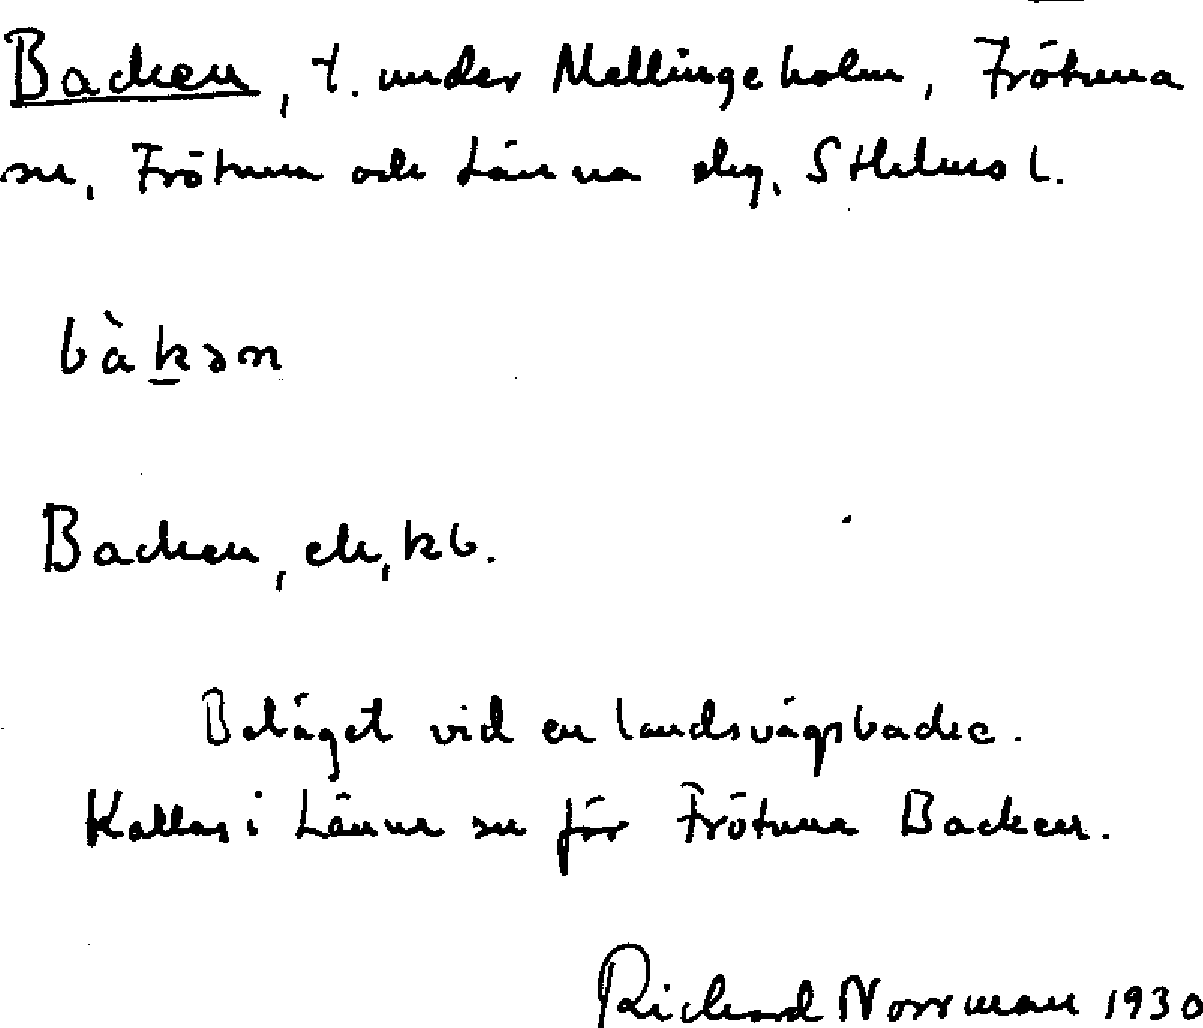 Backen, t. under Mellingeholm, Frötuna
sn, Frötuna och Länna skg, Sthlms l.
bàkən
Backen, ek, kb.
Beläget vid en landsvägsbacke.
Kallas i Länna sn för Frötuna Backen.
Richard Norrman 1930